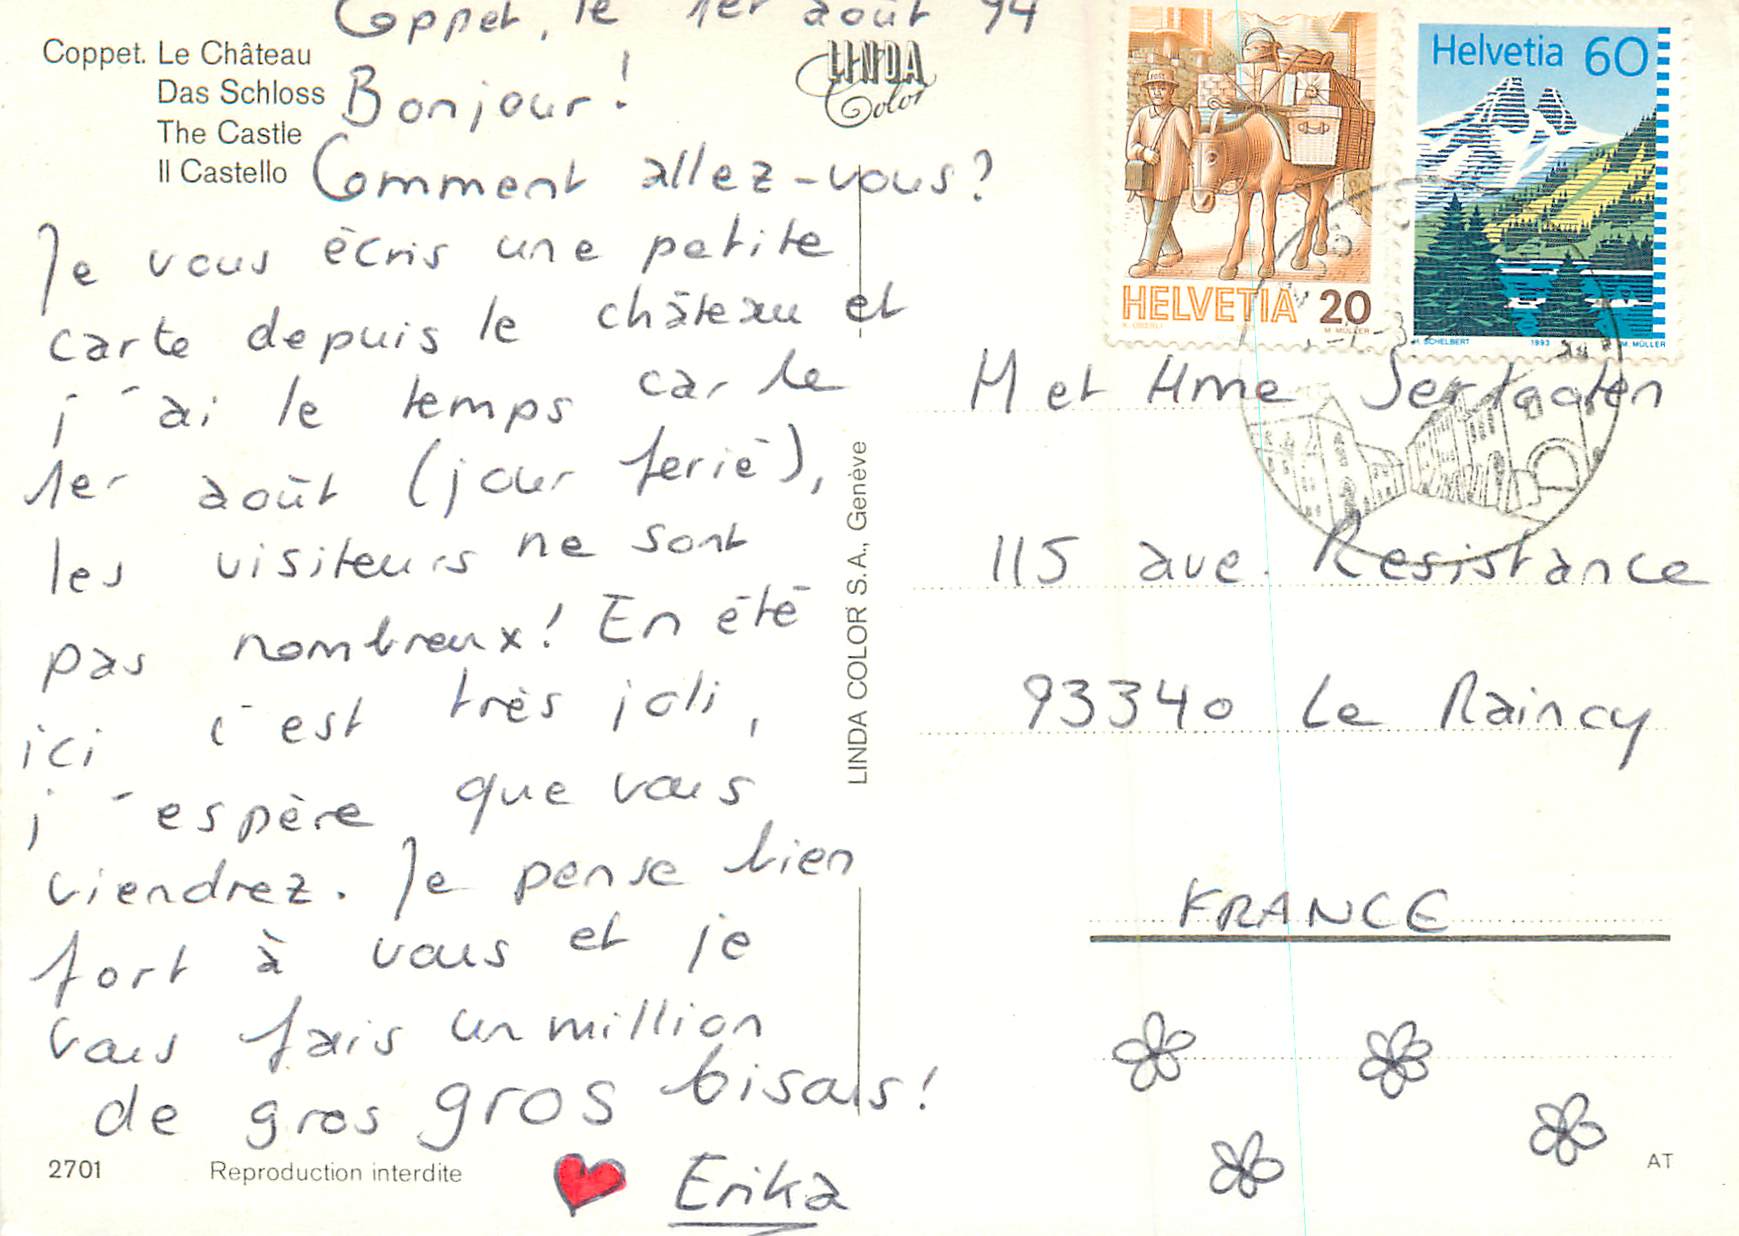 Coppet, le 1er août 94
Coppet. Le Château
Das Schloss
The Castle
Il Castello
LINDA
Color
Bonjour!
Comment allez-vous?
Je vous écris une petite
carte depuis le château et
j'ai le temps car le
1er août (jour ferié),
les visiteurs ne sont
pas nombreux! En été
ici c'est très joli,
j'espère que vous
viendrez. Je pense bien
fort à vous et je
vous fais un million
de gros gros bisous!
Erika
2701 Reproduction interdite
LINDA COLOR S.A., Genève
HELVETIA 20
M. MÜLLER
Helvetia 60
H. SCHELBERT 1993 M. MÜLLER
M et Mme
115 ave. Resistance
93340 Le Raincy
FRANCE
AT